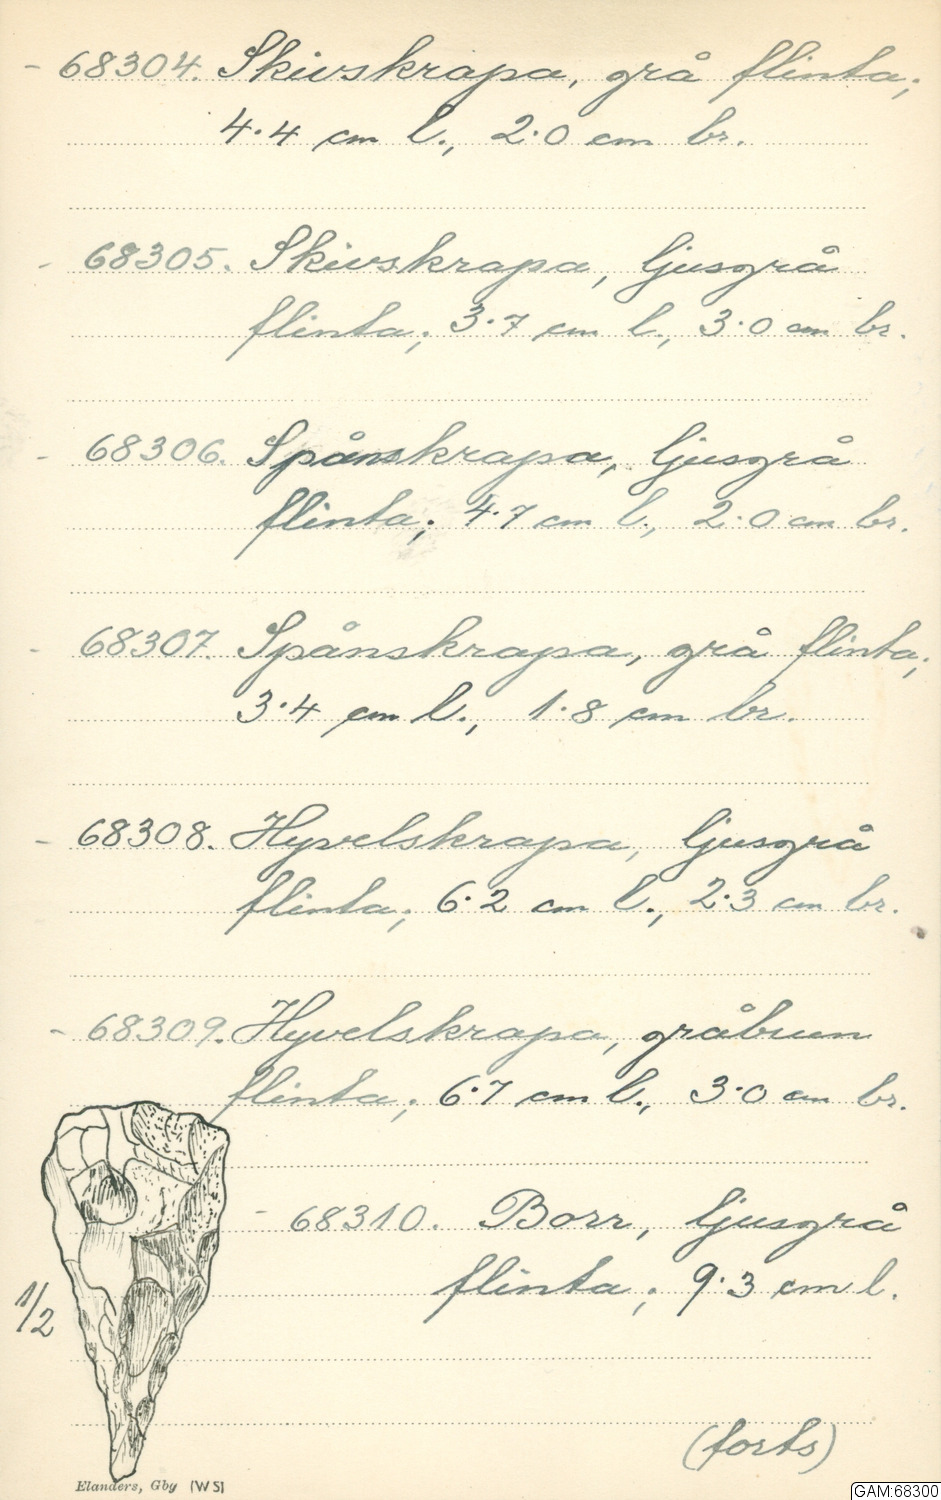 - 68304. Skivskrapa, grå flinta;
4.4 cm l., 2.0 cm br.
- 68305. Skivskrapa, ljusgrå
flinta; 3.7 cm l., 3.0 cm br.
- 68306. Spånskrapa, ljusgrå
flinta; 4.7 cm l., 2.0 cm br.
- 68307. Spånskrapa, grå flinta;
3.4 cm l., 1.8 cm br.
- 68308. Hyvelskrapa, ljusgrå
flinta; 6.2 cm l., 2.3 cm br.
- 68309. Hyvelskrapa, gråbrun
flinta; 6.7 cm l., 3.0 cm br.
- 68310. Borr, ljusgrå
flinta; 9.3 cm l.
1/2
(forts)
Elanders, Gby (WS)
GAM:68300